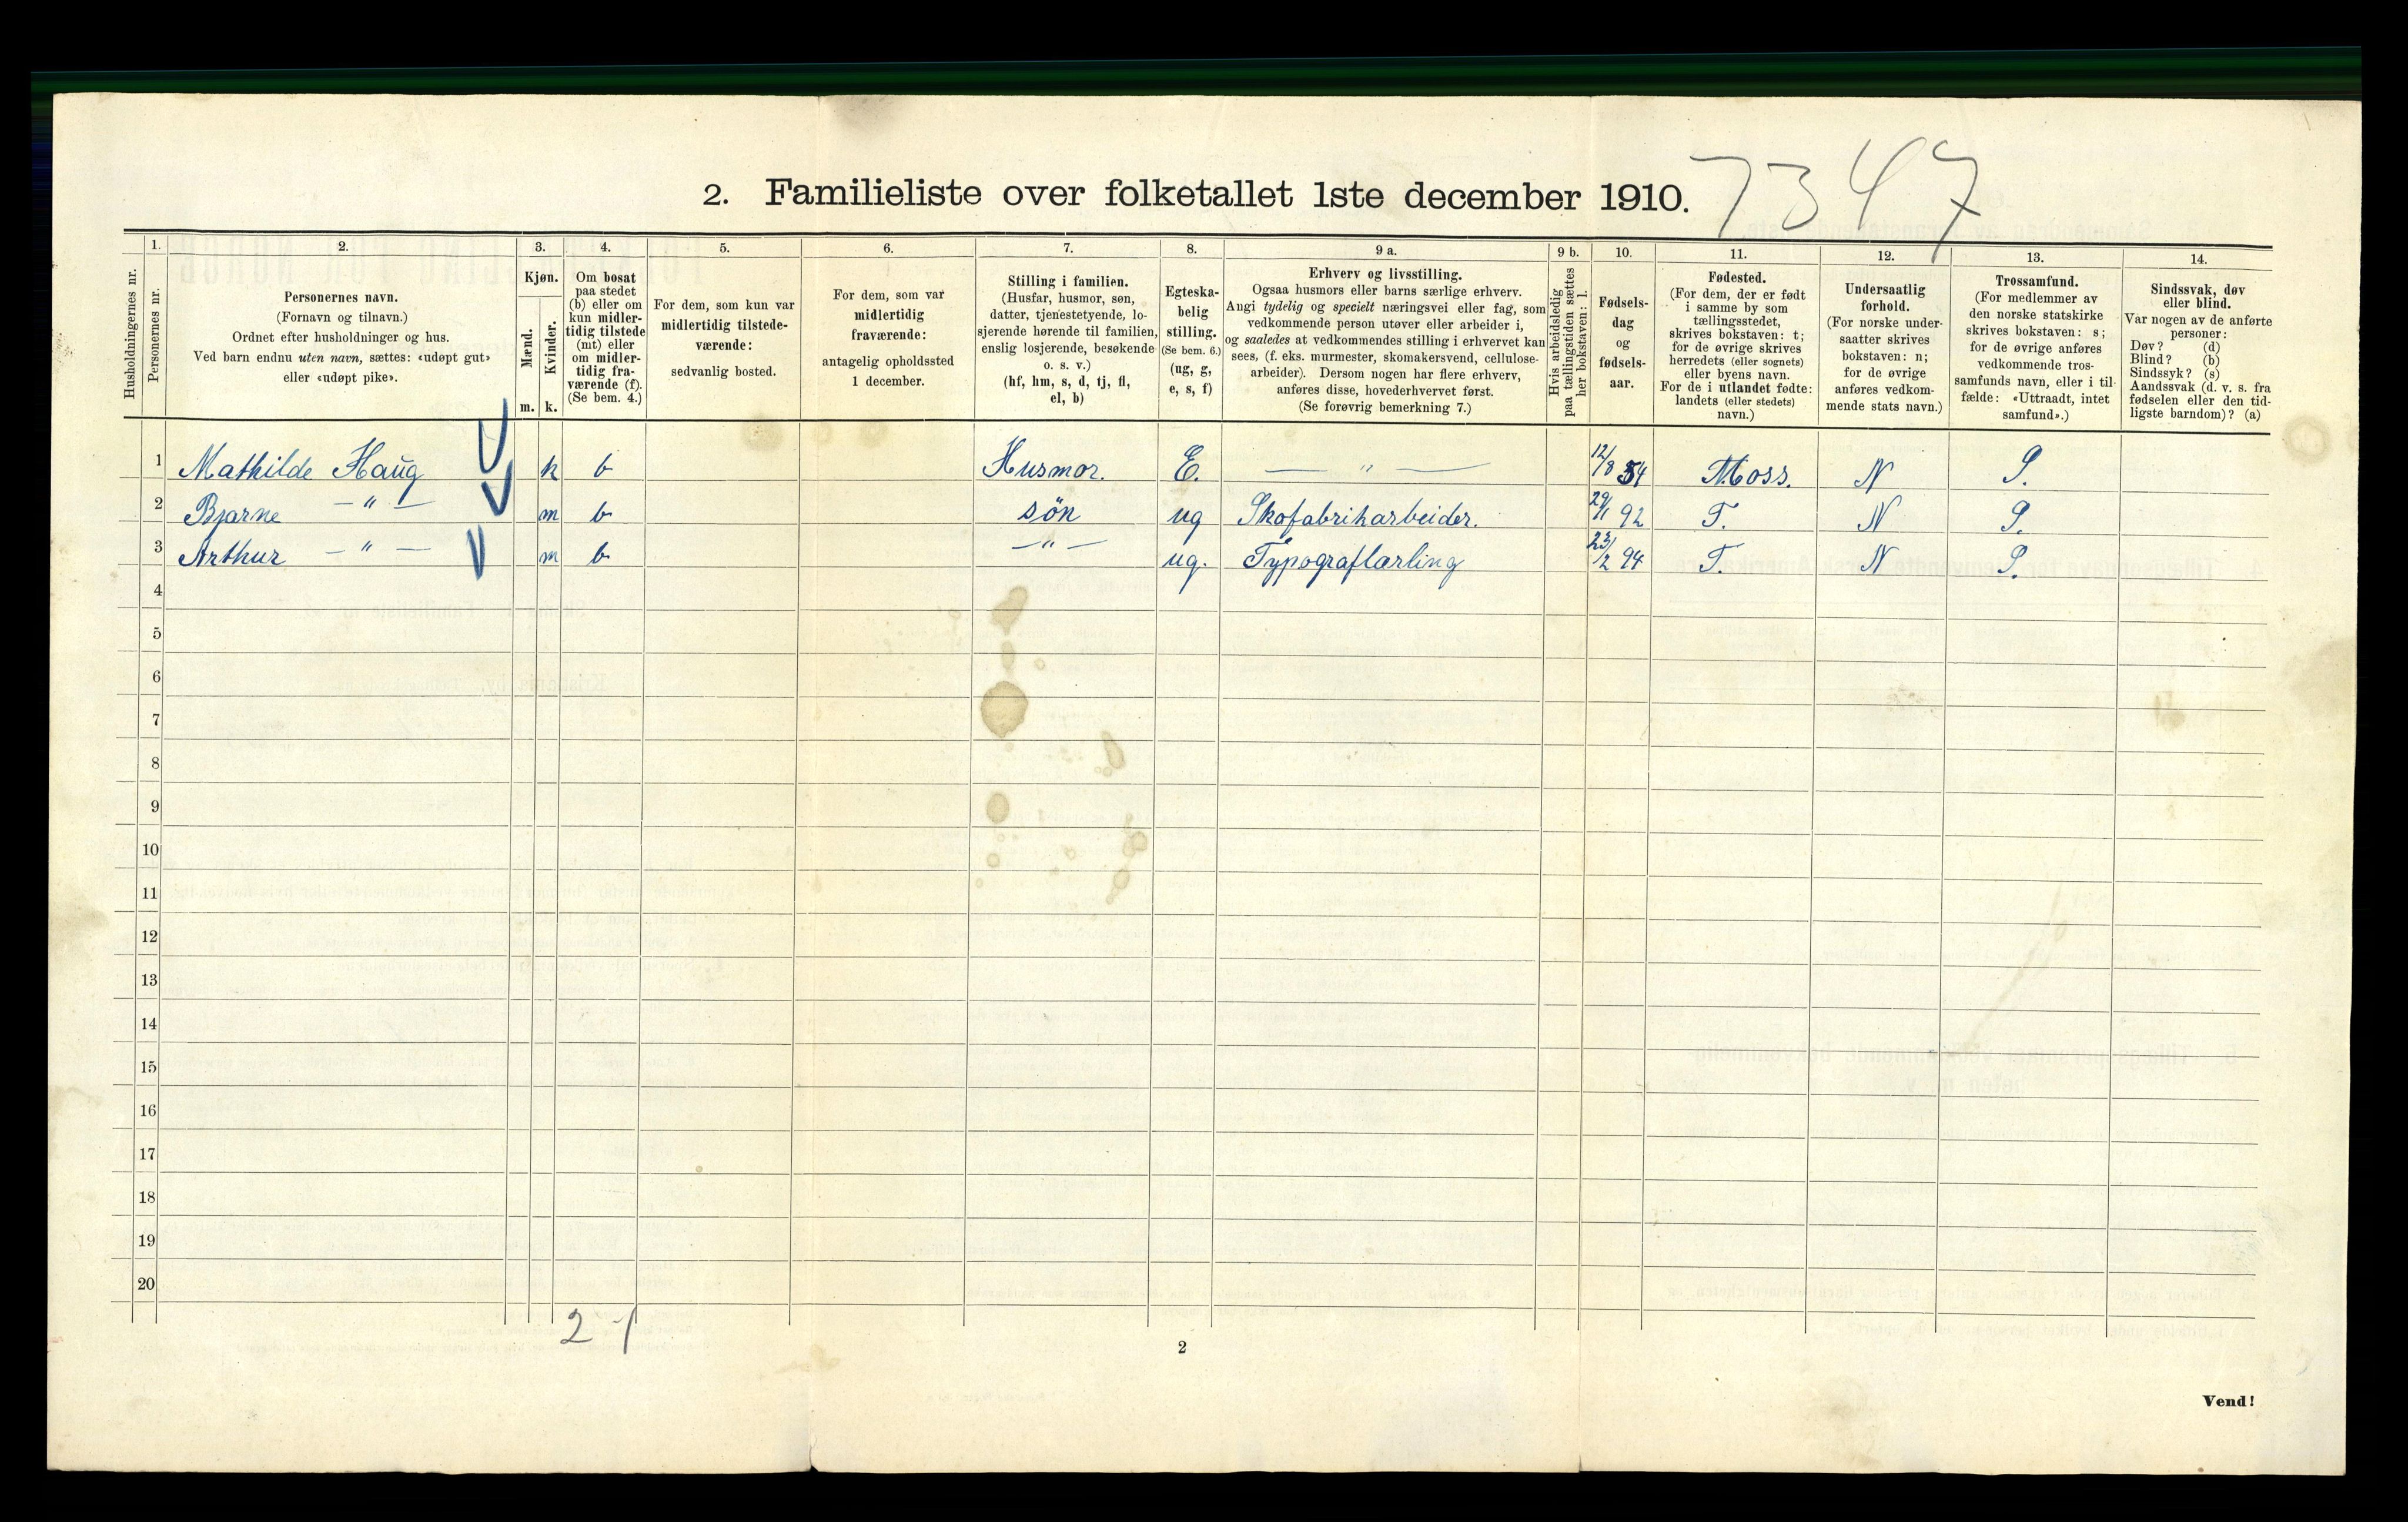 7347
2. Familieliste over folketallet 1ste december 1910.
Husholdningernes nr.
1.
Personernes nr.
2.
Personernes navn.
(Fornavn og tilnavn.)
Ordnet efter husholdninger og hus.
Ved barn endnu uten navn, sættes: «udøpt gut»
eller «udøpt pike».
3.
Kjøn.
Mænd.
m.
Kvinder.
k.
4.
Om bosat
paa stedet
(b) eller om
kun midler-
tidig tilstede
(mt) eller
om midler-
tidig fra-
værende (f).
(Se bem. 4.)
5.
For dem, som kun var
midlertidig tilstede-
værende:
sedvanlig bosted.
6.
For dem, som var
midlertidig
fraværende:
antagelig opholdssted
1 december.
7.
Stilling i familien.
(Husfar, husmor, søn,
datter, tjenestetyende, lo-
sjerende hørende til familien,
enslig losjerende, besøkende
o. s. v.)
(hf, hm, s, d, tj, fl,
el, b)
8.
Egteska-
belig
stilling.
(Se bem. 6.)
(ug, g,
e, s, f)
9 a.
Erhverv og livsstilling.
Ogsaa husmors eller barns særlige erhverv.
Angi tydelig og specielt næringsvei eller fag, som
vedkommende person utøver eller arbeider i,
og saaledes at vedkommendes stilling i erhvervet kan
sees, (f. eks. murmester, skomakersvend, cellulose-
arbeider). Dersom nogen har flere erhverv,
anføres disse, hovederhvervet først.
(Se forøvrig bemerkning 7.)
9 b.
Hvis arbeidsledig
paa tællingstiden sættes
her bokstaven: l.
10.
Fødsels-
dag
og
fødsels-
aar.
11.
Fødested.
(For dem, der er født
i samme by som
tællingsstedet,
skrives bokstaven: t;
for de øvrige skrives
herredets (eller sognets)
eller byens navn.
For de i utlandet fødte:
landets (eller stedets)
navn.)
12.
Undersaatlig
forhold.
(For norske under-
saatter skrives
bokstaven: n;
for de øvrige
anføres vedkom-
mende stats navn.)
13.
Trossamfund.
(For medlemmer av
den norske statskirke
skrives bokstaven: s;
for de øvrige anføres
vedkommende tros-
samfunds navn, eller i til-
fælde: «Uttraadt, intet
samfund».)
14.
Sindssvak, døv
eller blind.
Var nogen av de anførte
personer:
Døv? (d)
Blind? (b)
Sindssyk? (s)
Aandssvak (d. v. s. fra
fødselen eller den tid-
ligste barndom)? (a)
1 Mathilde Haug k b Husmor. E. — " — 12/8 54 Moss. N S.
2 Bjarne — " — m b søn ug Skofabrikarbeider. 29/1 92 T. N S.
3 Arthur — " — m b — " — ug. Typograflærling 23/2 94 T. N S.
4
5
6
7
8
9
10
11
12
13
14
15
16
17
18
19
20
2 - 1
2
Vend!